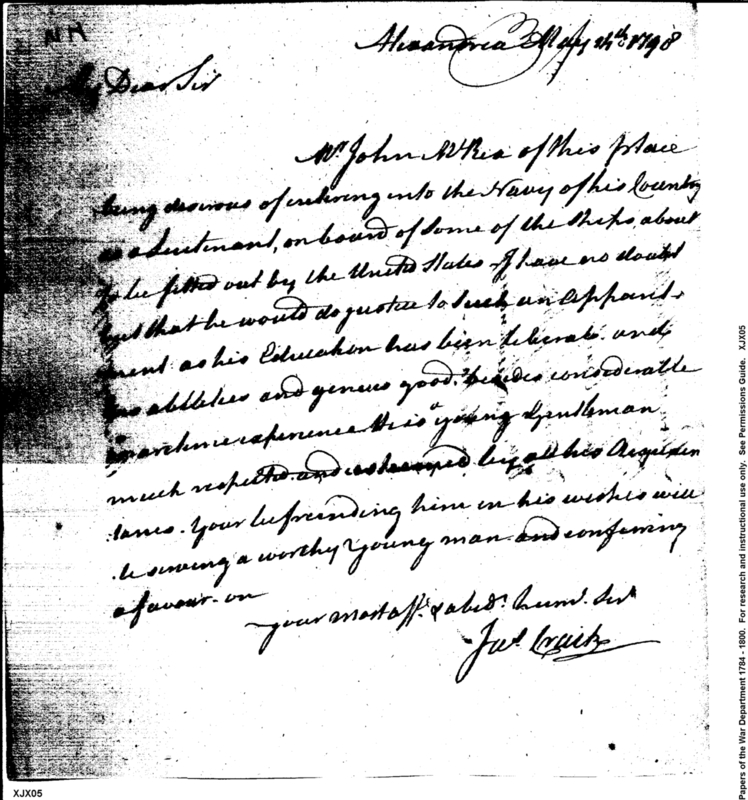 NM
Alexandria May 24th 1798
My Dear Sir
Mr. John McRea of this place
being desirous of entering into the Navy of his Country
as a Lieutenant, on board of some of the Ships about
to be fitted out by the United States - I have no doubt
but that he would do justice to such an appoint-
ment as his Education has been liberal and
his abilities and genius good. besides considerable
marine experience He is a young Gentleman
much respected and esteemed by all his Acquain
tance. Your befreinding him in his wishes will
be serving a worthy Young man and conferring
a favour on
your most aff. & obedt. humb. Sert
Jas. Craik
XJX05
Papers of the War Department 1784 - 1800. For research and instructional use only. See Permissions Guide. XJX05